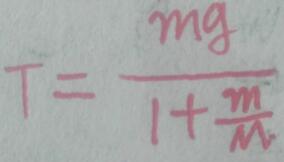 T = \frac{mg}{1 + \frac{m}{M}}